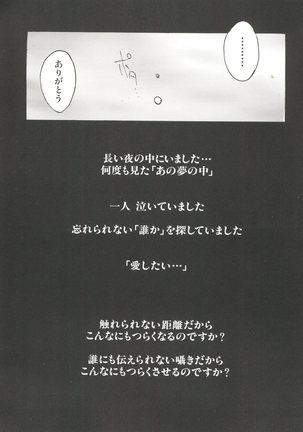 ………
ポタ…
ありがとう
長い夜の中にいました…
何度も見た「あの夢の中」
一人 泣いていました
忘れられない「誰か」を探していました
「愛したい…」
触れられない距離だから
こんなにもつらくなるのですか?
誰にも伝えられない囁きだから
こんなにもつらくさせるのですか?